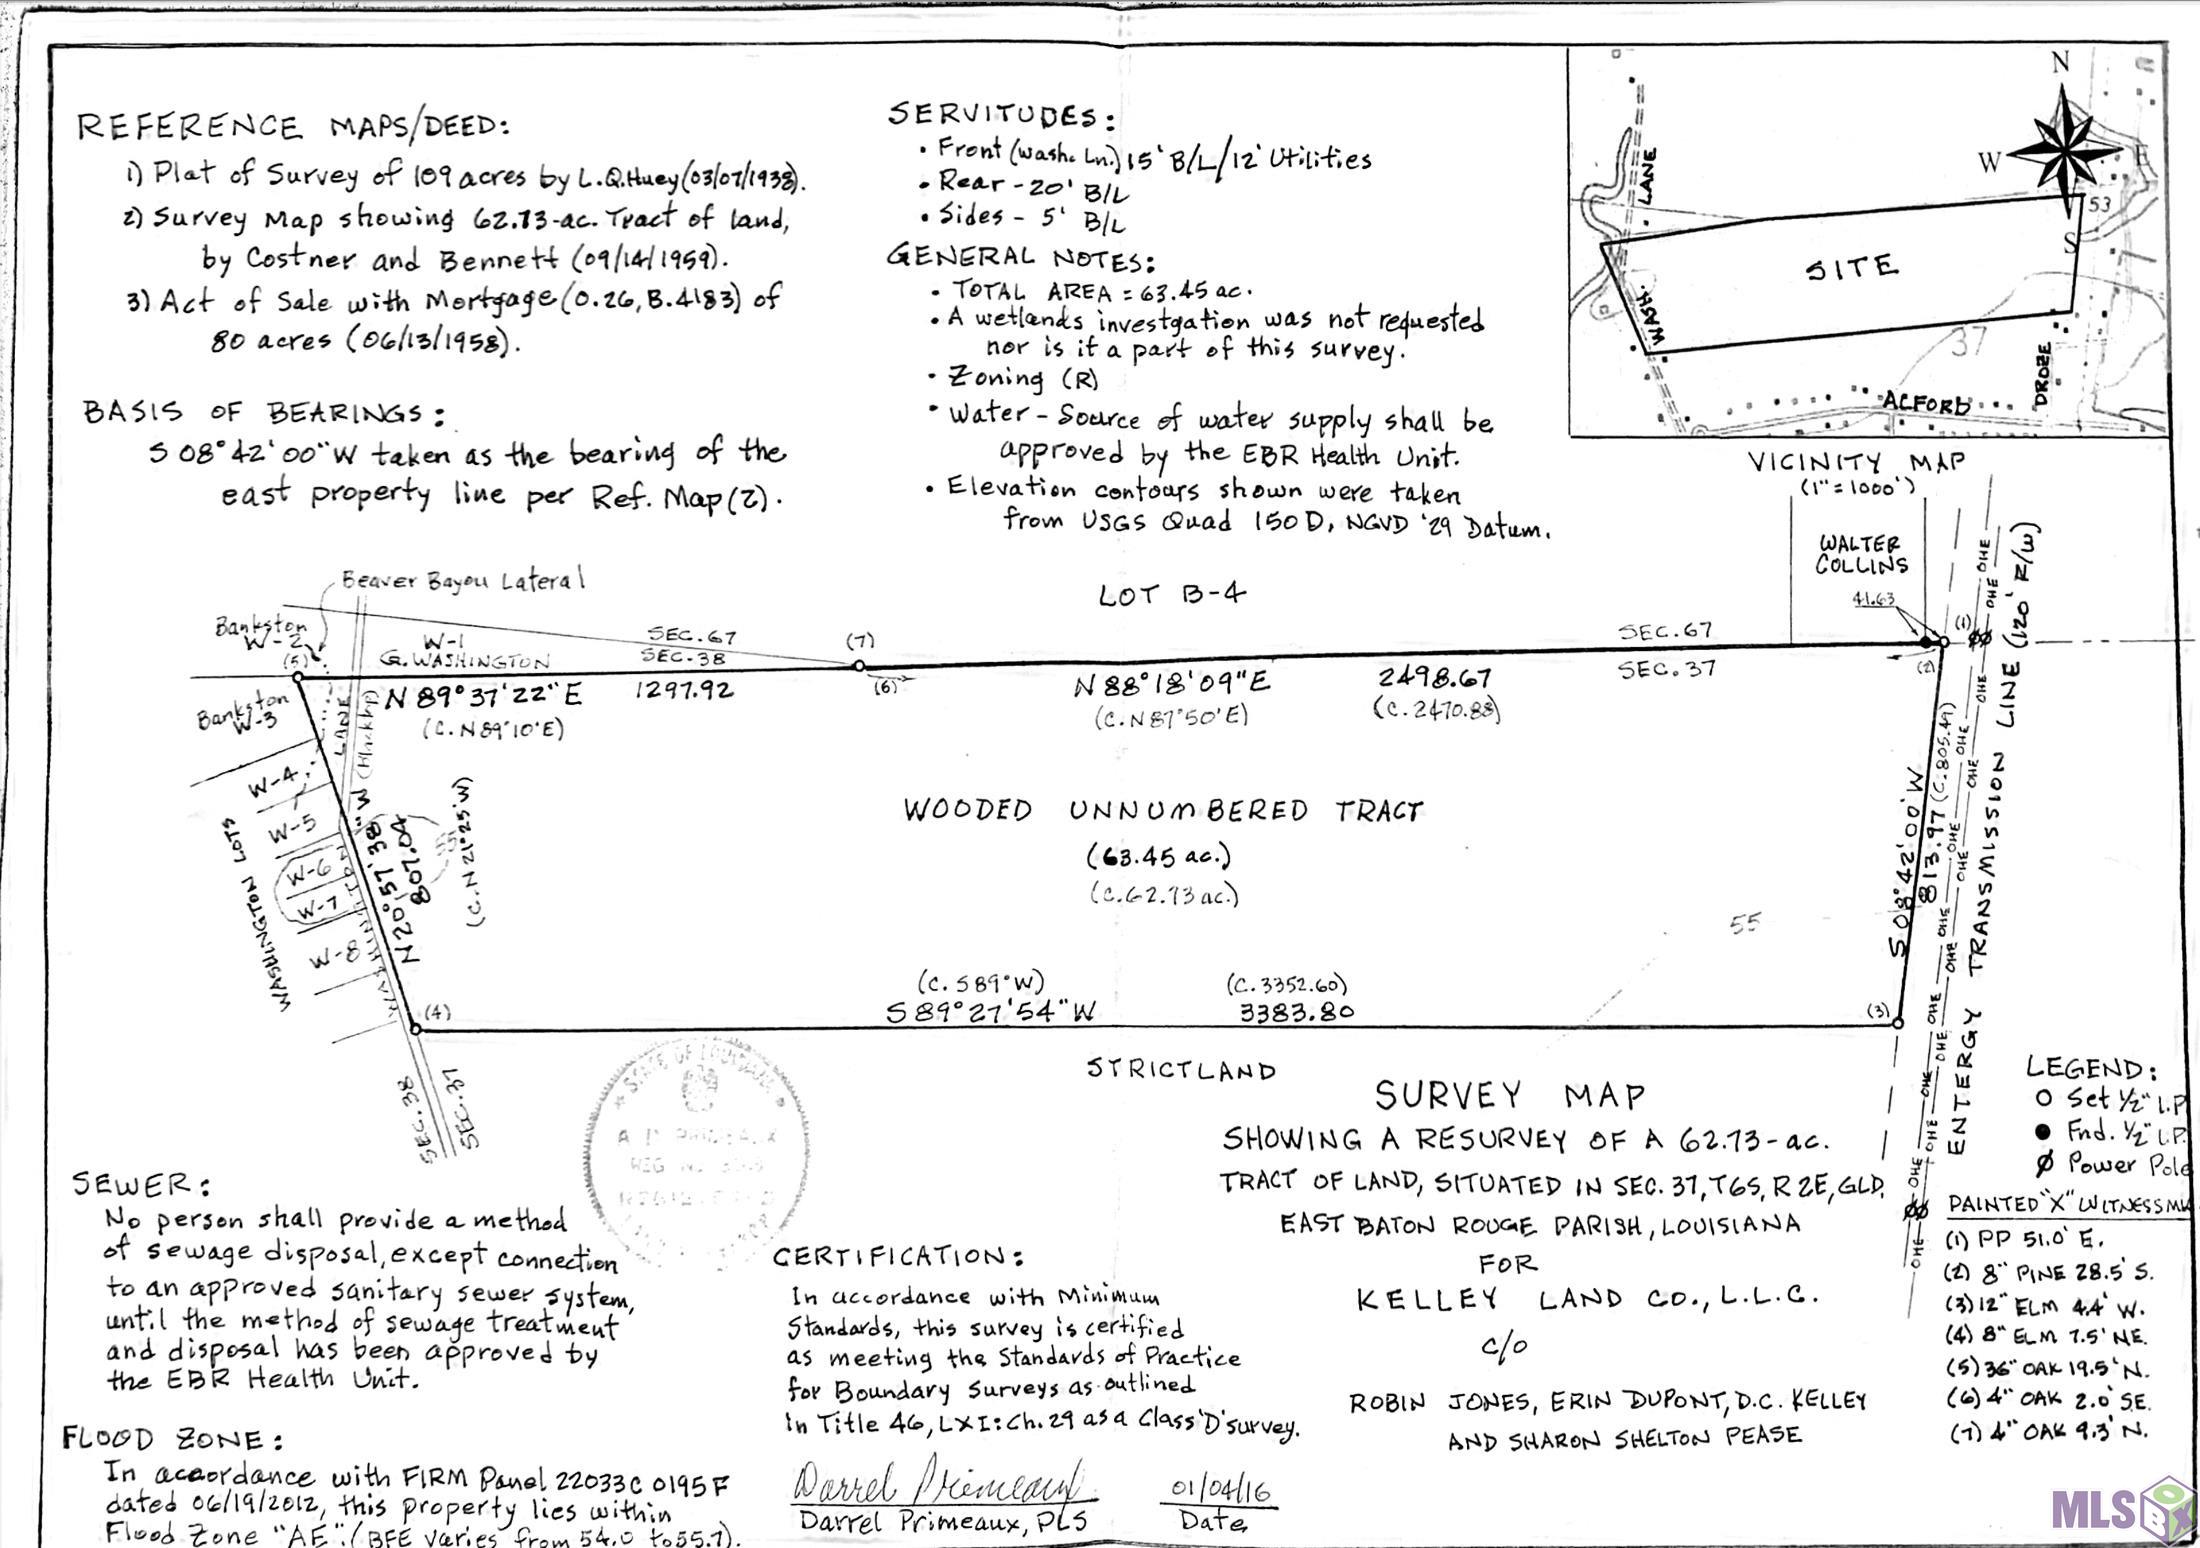 REFERENCE MAPS/DEED:
1) Plat of Survey of 109 acres by L.Q.Huey (03/07/1938).
2) Survey Map showing 62.73-ac. Tract of land,
by Costner and Bennett (09/14/1959).
3) Act of Sale with Mortgage (O.26, B.4183) of
80 acres (06/13/1958).
BASIS OF BEARINGS:
S 08°42'00"W taken as the bearing of the
east property line per Ref. Map (2).
SERVITUDES:
• Front (Wash. Ln.) 15' B/L/12' Utilities
• Rear - 20' B/L
• Sides - 5' B/L
GENERAL NOTES:
• TOTAL AREA = 63.45 ac.
• A wetlands investgation was not requested
nor is it a part of this survey.
• Zoning (R)
• Water - Source of water supply shall be
approved by the EBR Health Unit.
• Elevation contours shown were taken
from USGS Quad 150D, NGVD '29 Datum.
N
W
E
S
LANE
WASH.
SITE
53
37
DROZE
ACFORD
VICINITY MAP
(1"=1000')
WALTER
COLLINS
41.63
(1)
(2)
Beaver Bayou Lateral
Bankston
W-2
(5)
W-1
G. WASHINGTON
SEC. 67
SEC. 38
(7)
(6)
LOT B-4
SEC. 67
SEC. 37
N 89°37'22" E 1297.92
(C. N 89°10'E)
N 88°18'09"E 2498.67
(C. N 87°50'E) (C. 2470.88)
Bankston
W-3
W-4
W-5
W-6
W-7
W-8
WASHINGTON LOTS
WASHINGTON
LANE
(Blacktop)
N 20°57'38"W
807.04
(C. N 21°25'W)
55
WOODED UNNUMBERED TRACT
(63.45 ac.)
(C. 62.73 ac.)
55
S 08°42'00"W
813.97 (C. 805.49)
OHE
ENTERGY TRANSMISSION LINE (120' R/W)
(C. S 89°W) (C. 3352.60)
S 89°27'54"W 3383.80
(4)
(3)
SEC. 38
SEC. 37
STRICTLAND
STATE OF LOUISIANA
SURVEY MAP
SHOWING A RESURVEY OF A 62.73-ac.
TRACT OF LAND, SITUATED IN SEC. 37, T6S, R2E, GLD,
EAST BATON ROUGE PARISH, LOUISIANA
FOR
KELLEY LAND CO., L.L.C.
c/o
ROBIN JONES, ERIN DUPONT, D.C. KELLEY
AND SHARON SHELTON PEASE
LEGEND:
Set 1/2" I.P.
Fnd. 1/2" I.P.
Power Pole
PAINTED "X" WITNESS
(1) PP 51.0' E.
(2) 8" PINE 28.5' S.
(3) 12" ELM 4.4' W.
(4) 8" ELM 7.5' NE.
(5) 36" OAK 19.5' N.
(6) 4" OAK 2.0' SE.
(7) 4" OAK 9.3' N.
SEWER:
No person shall provide a method
of sewage disposal, except connection
to an approved sanitary sewer system,
until the method of sewage treatment
and disposal has been approved by
the EBR Health Unit.
FLOOD ZONE:
In accordance with FIRM Panel 22033C 0195 F
dated 06/19/2012, this property lies within
Flood Zone "AE". (BFE varies from 54.0 to 55.7).
CERTIFICATION:
In accordance with Minimum
Standards, this survey is certified
as meeting the Standards of Practice
for Boundary Surveys as outlined
in Title 46, LXI: Ch. 29 as a Class 'D' survey.
Darrel Primeaux
Darrel Primeaux, PLS
01/04/16
Date
MLS BOX